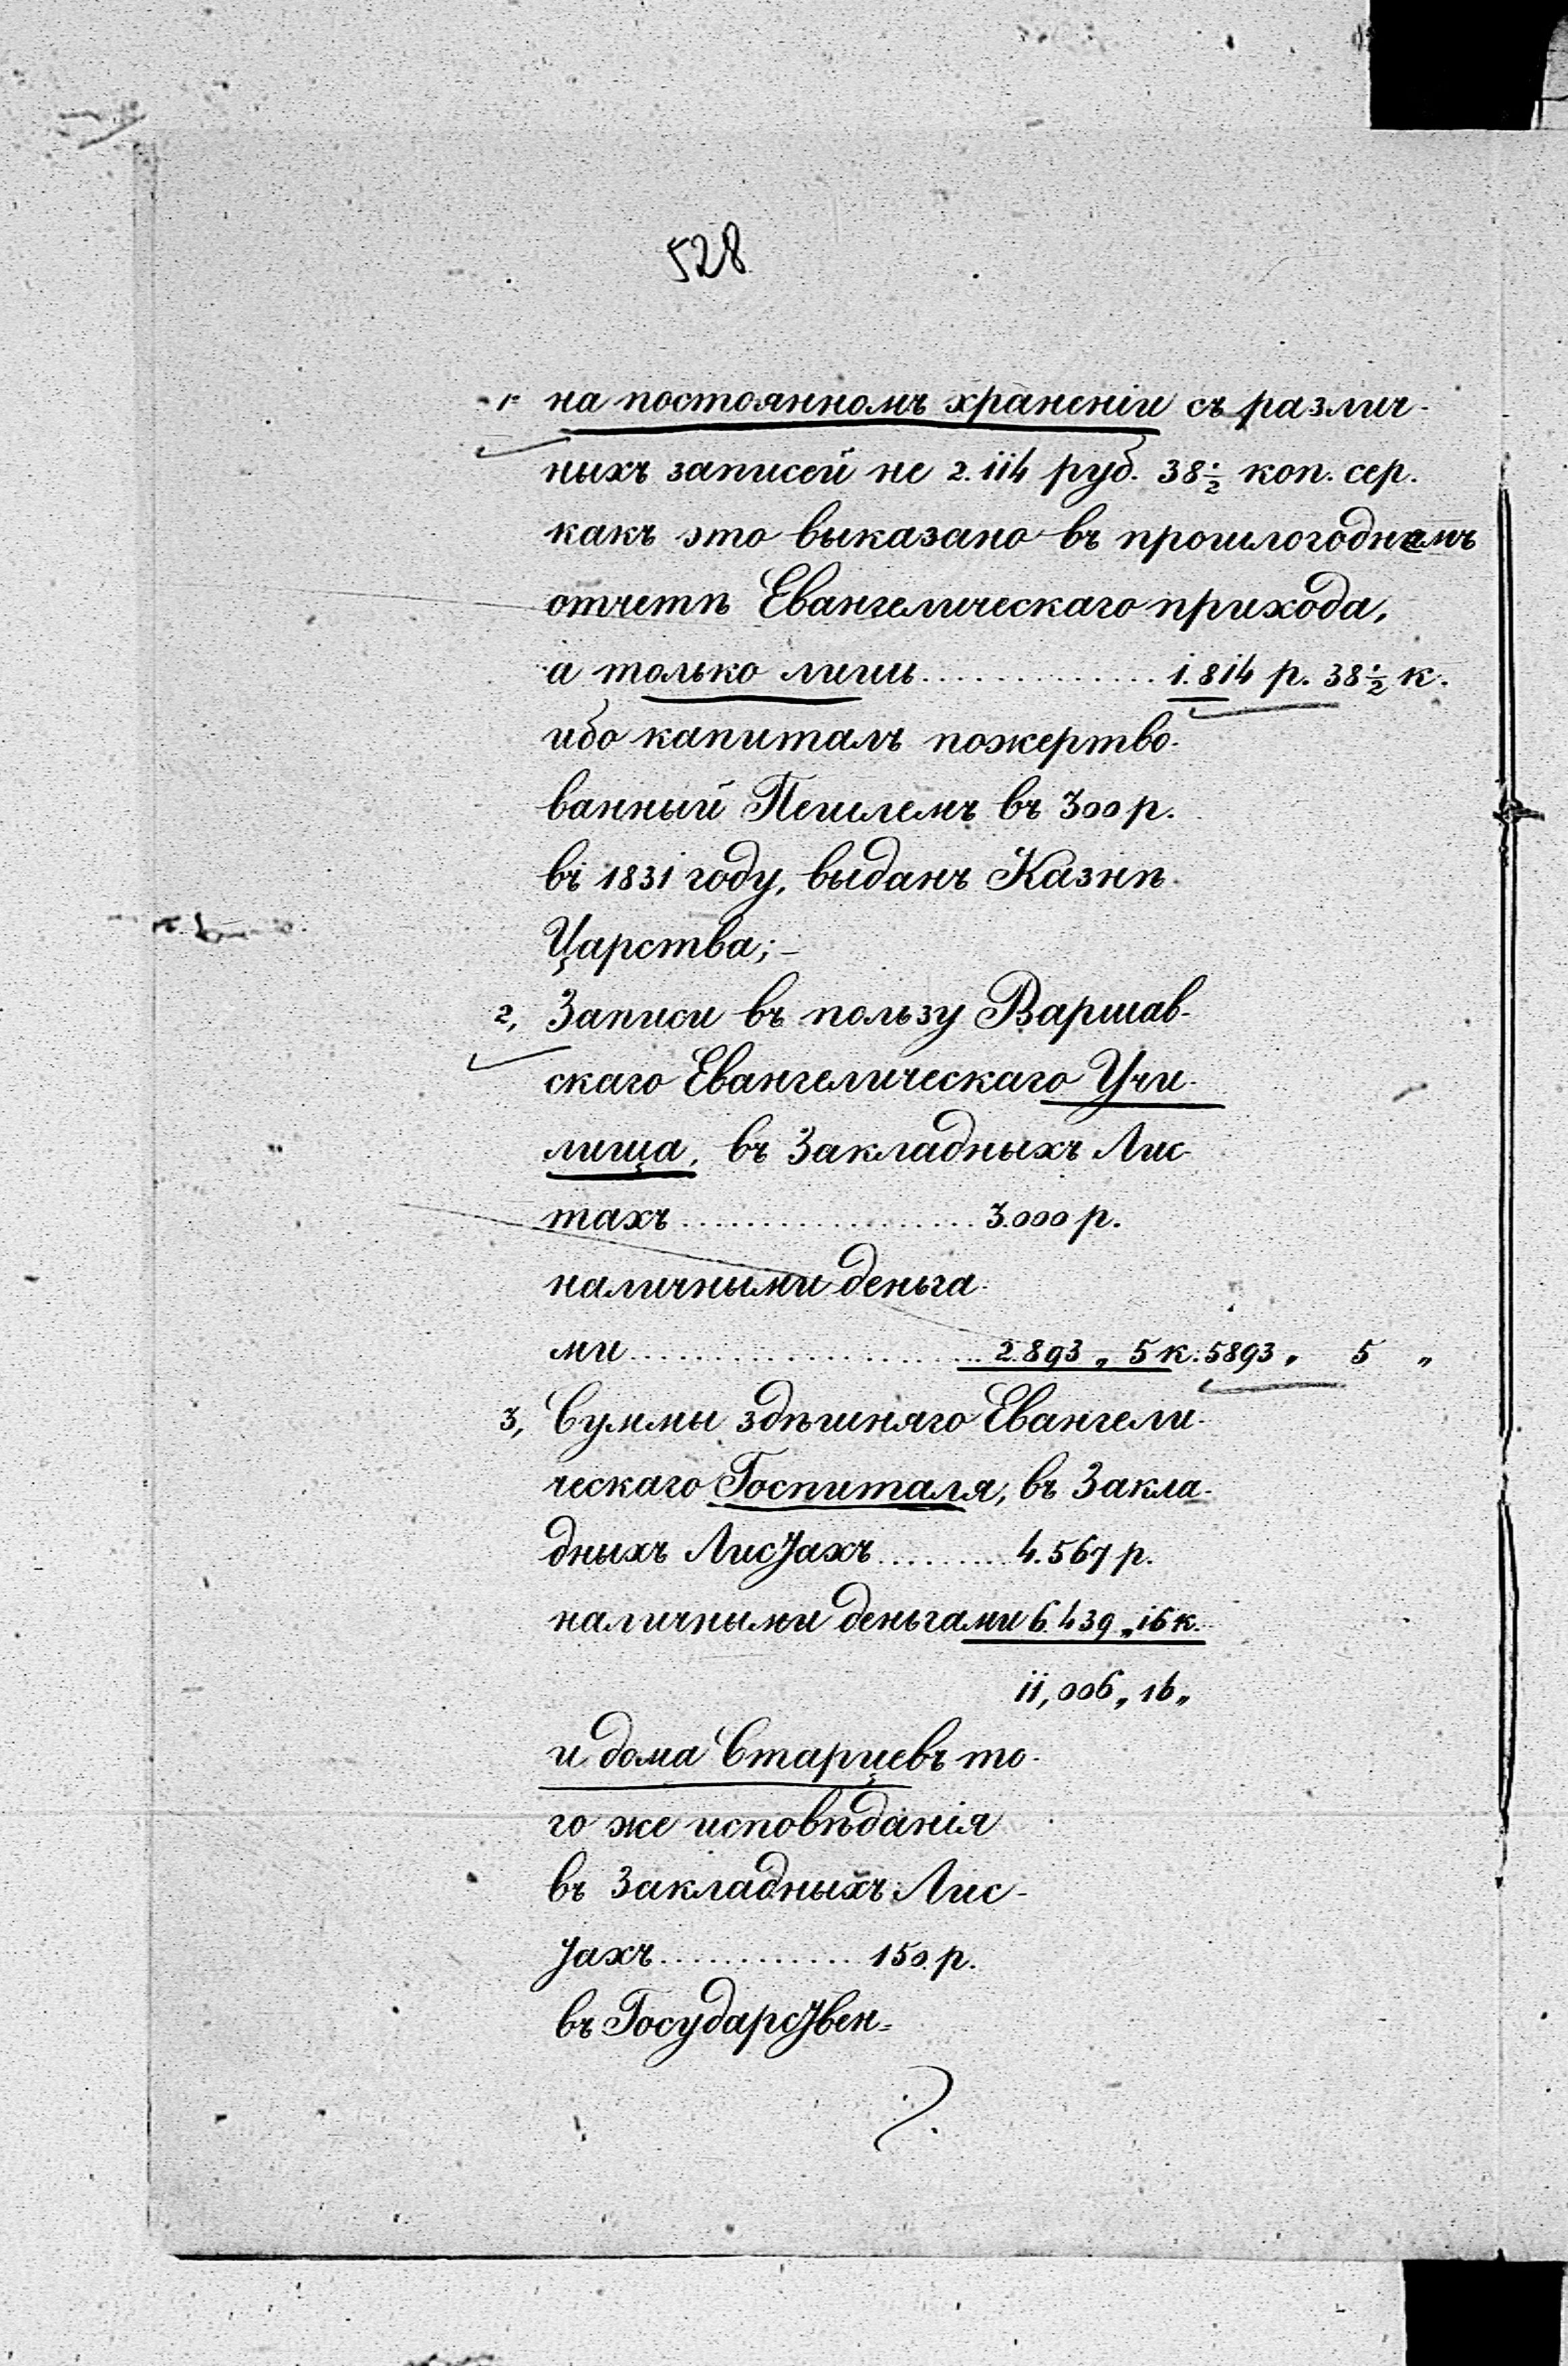 528
1. на постоянномъ храненіи съ различ-
ныхъ записей не 2.114 руб. 38 1/2 коп. сер.
какъ это выказано въ прошлогоднемъ
отчетѣ Евангелическаго прихода,
а только лишь.............. 1.814 р. 38 1/2 к.
ибо капиталъ пожертво-
ванный Пешлемъ въ 300 р.
въ 1831 году, выданъ Казнѣ
Царства;-
2, Записи въ пользу Варшав-
скаго Евангелическаго Учи-
лища, въ Закладныхъ Лис-
тахъ.................... 3.000 р.
наличными деньга-
ми........................ 2.893 „ 5 к. 5893 „ 5 „
3, Суммы здѣшняго Евангели-
ческаго Госпиталя, въ Закла-
дныхъ Листахъ......... 4.567 р.
наличными деньгами 6.439 „ 16 к.
11,006 „ 16 „
и дома Старцевъ то-
го же исповѣданія
въ Закладныхъ Лис-
тахъ.............. 150 р.
въ Государствен-